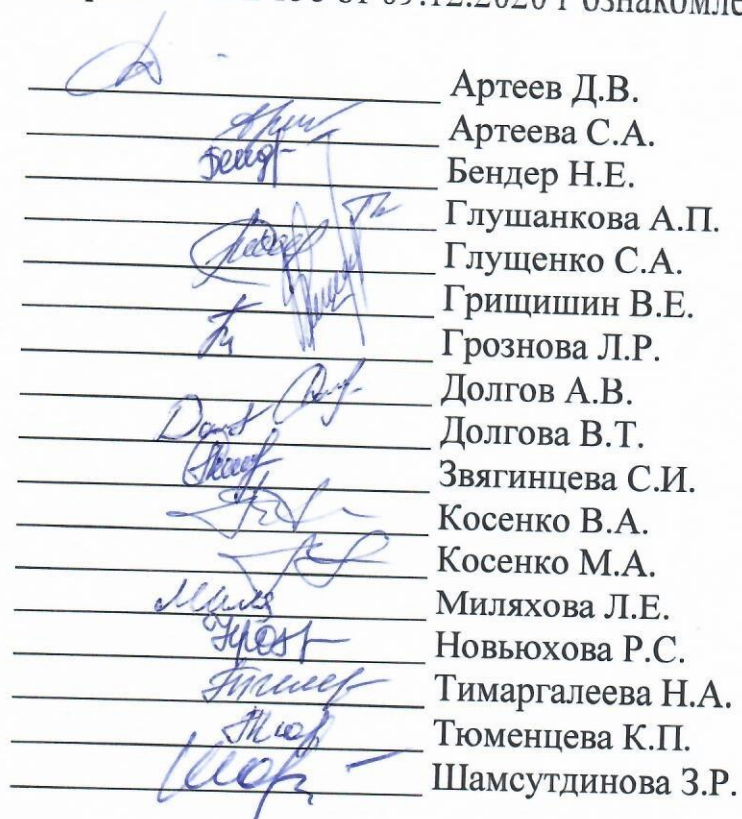 от 09.12.2020 г ознакомле
Артеев Д.В.
Артеева С.А.
Бендер Н.Е.
Глушанкова А.П.
Глущенко С.А.
Грищишин В.Е.
Грознова Л.Р.
Долгов А.В.
Долгова В.Т.
Звягинцева С.И.
Косенко В.А.
Косенко М.А.
Миляхова Л.Е.
Новьюхова Р.С.
Тимаргалеева Н.А.
Тюменцева К.П.
Шамсутдинова З.Р.